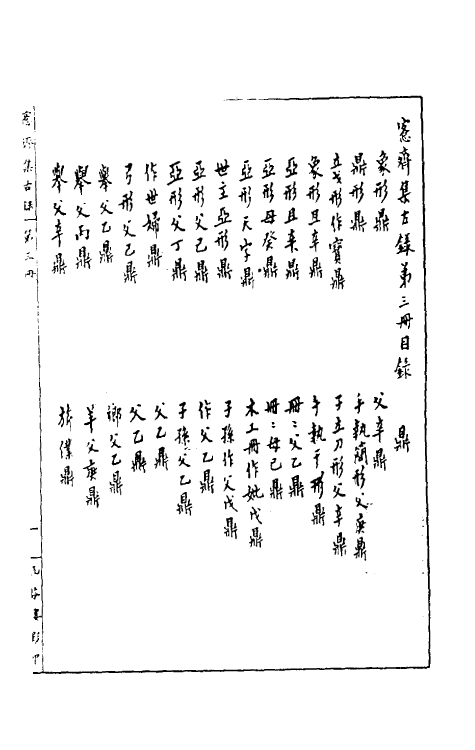 愙齋集古錄第三冊目錄　鼎
象形鼎
鼎形鼎
立戈形作寶鼎
象形且辛鼎
亞形且辛鼎
亞形母癸鼎
亞形天字鼎
世主亞形鼎
亞形父己鼎
亞形父丁鼎
作世婦鼎
弓形父己鼎
舉父乙鼎
舉父丙鼎
舉父辛鼎
父辛鼎
手執蘭形父庚鼎
子立刀形父辛鼎
手執干形鼎
冊冊父乙鼎
冊冊母己鼎
木工冊作妣戊鼎
子孫作父戊鼎
作父乙鼎
子孫父乙鼎
父乙鼎
父乙鼎
鄉父乙鼎
羊父庚鼎
旂僕鼎
愙齋集古錄　第三冊
一